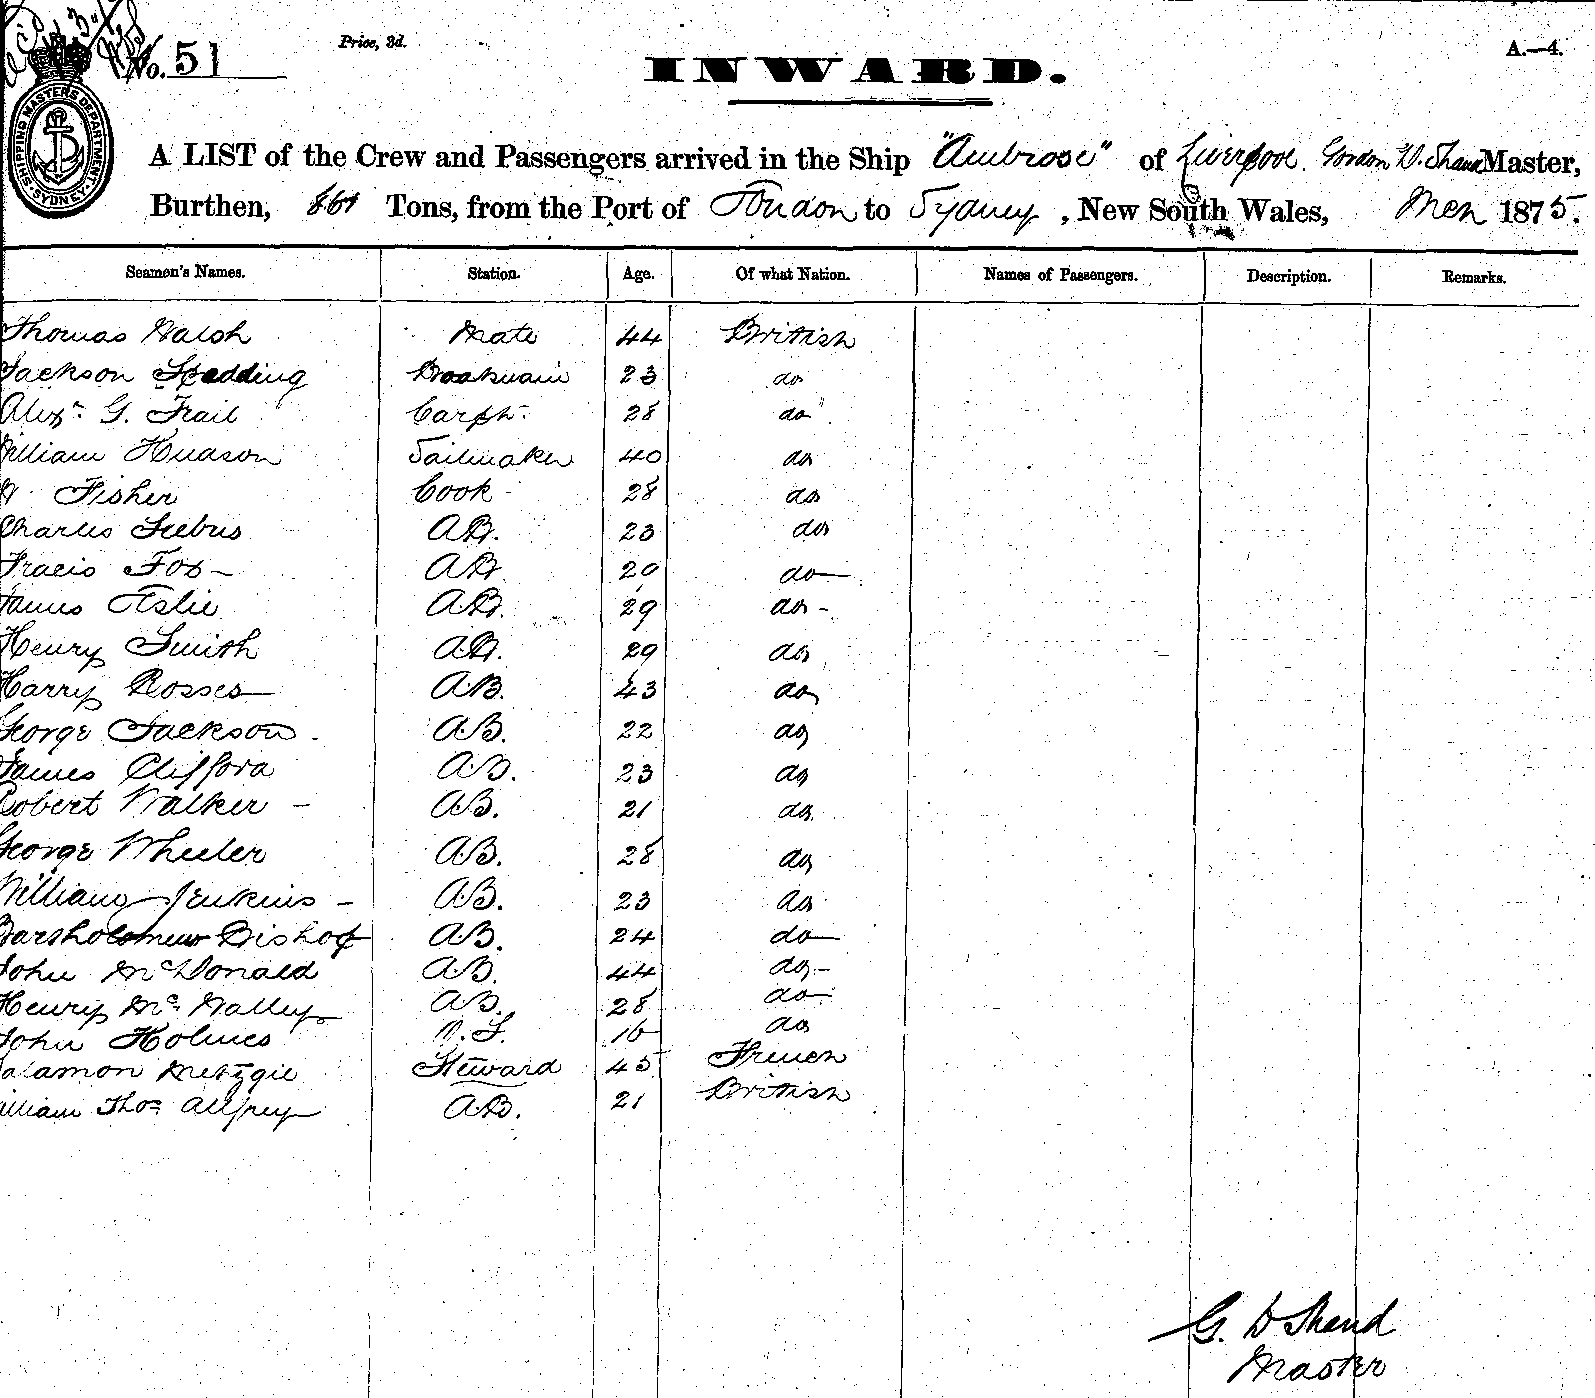 No. 51
Price, 3d.
A.—4.
INWARD.
SHIPPING MASTERS DEPARTMENT SYDNEY
A LIST of the Crew and Passengers arrived in the Ship "Ambrose" of Liverpool. Gordon D. Shand Master,
Burthen, Tons, from the Port of London to Sydney, New South Wales, 1875.
Seamen's Names. Station. Age. Of what Nation. Names of Passengers. Description. Remarks.
Thomas Walsh Mate 44 British
Jackson Spedding Boatswain 23 do
Alexr. G. Frail Carptr. 28 do
William Hudson Sailmaker 40 do
Fisher Cook 28 do
Charles A.B. 23 do
Fox A.B. do
James Eslie A.B. 29 do
Henry Smith A.B. 29 do
Harry Rosses A.B. 43 do
George Jackson. A.B. 22 do
James Clifford A.B. 23 do
Robert Walker A.B. 21 do
George Wheeler A.B. 28 do
William Jenkins A.B. 23 do
Bartholomew Bishop A.B. 24 do
John McDonald A.B. 44 do
Henry McNally A.B. 28 do
John Holmes O.S. 16 do
Salamon Metzgie Steward 45 French
William Thos Allfrey A.B. 21 British
G. D Shand
Master